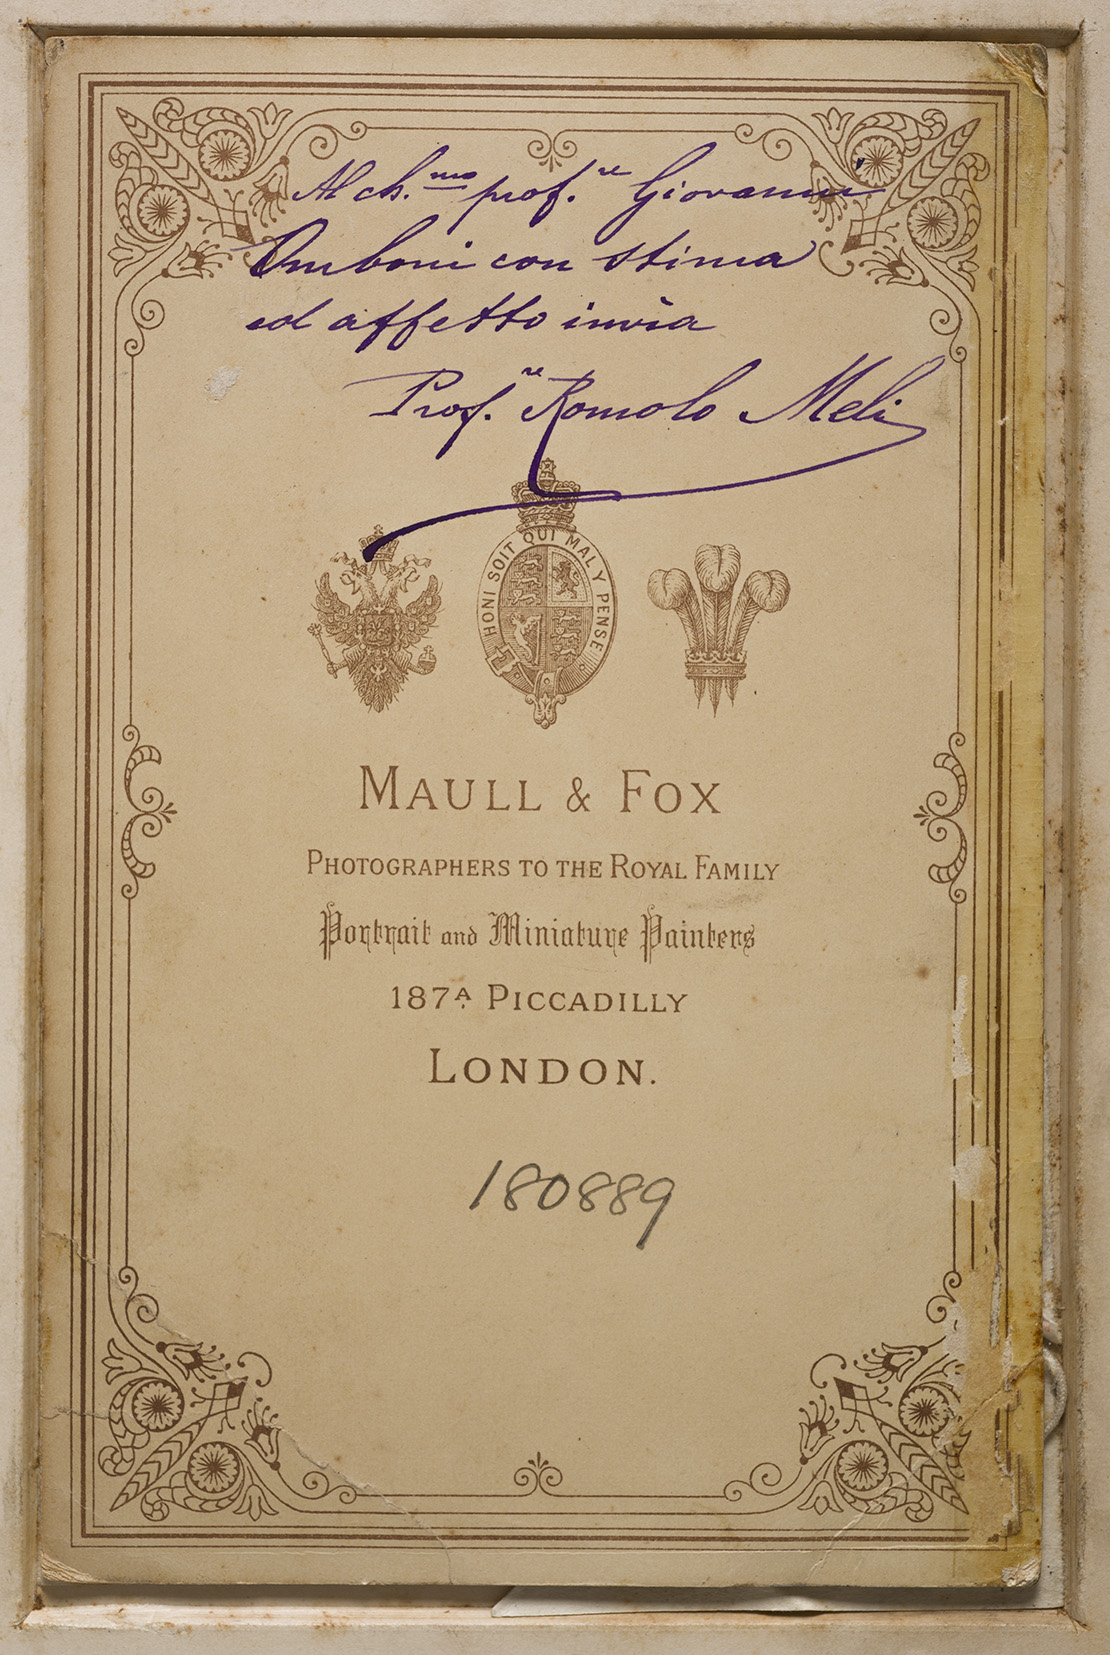 Al ch.mo prof.re Giovanni
Omboni con stima
ed affetto invìa
Prof.re Romolo Meli
HONI SOIT QUI MAL Y PENSE
MAULL & FOX
PHOTOGRAPHERS TO THE ROYAL FAMILY
Portrait and Miniature Painters
187A PICCADILLY
LONDON.
180889